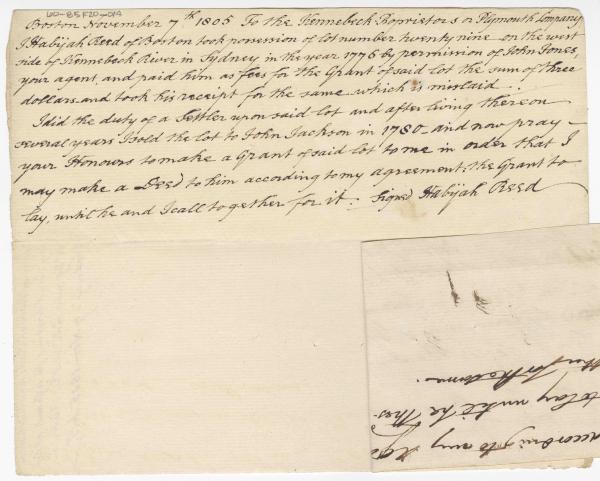 60-85F20-014
Boston November 7th 1805 To the Kennebeck Proprietors or Plymouth Company
I Habijah Reed of Boston took possession of lot number twenty nine on the west
side of Kennebeck River in Sydney in the year 1776 by permission of John Jones,
your agent, and paid him as fees for the Grant of said lot the sum of three
dollars and took his receipt for the same which is mislaid.
I did the duty of a Settler upon said lot and after living thereon
several years I sold the lot to John Jackson in 1780 and now pray
your Honours to make a Grant of said lot to me in order that I
may make a Deed to him according to my agreement, the Grant to
lay, until he and I call together for it. Signed Habijah Reed
according to my
to lay until he
for the same.